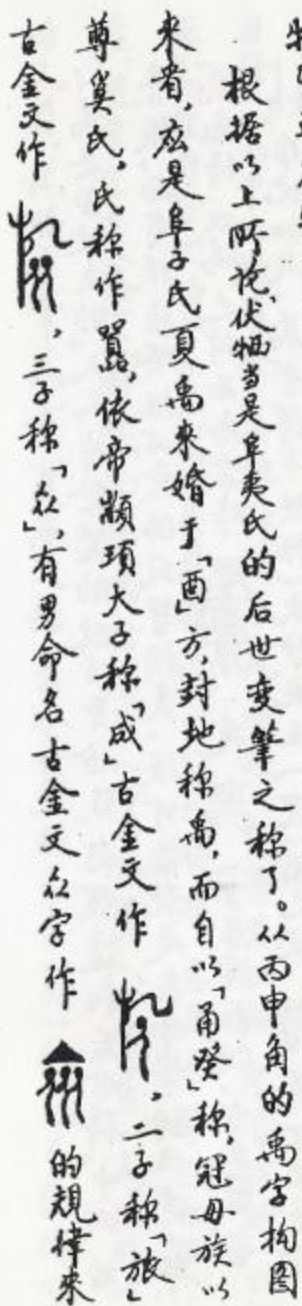 根据以上所论，伏牺当是阜夷氏的后世变笔之称了。从丙申角的禹字构图
来看，应是阜子氏夏禹来婚于「酉」方，封地称禹，而自以「甬癸」称，冠母族以
尊奠氏，氏称作嚣，依帝颛顼大子称「成」古金文作，二子称「旅」
古金文作，三子称「众」，有男命名古金文众字作的规律来